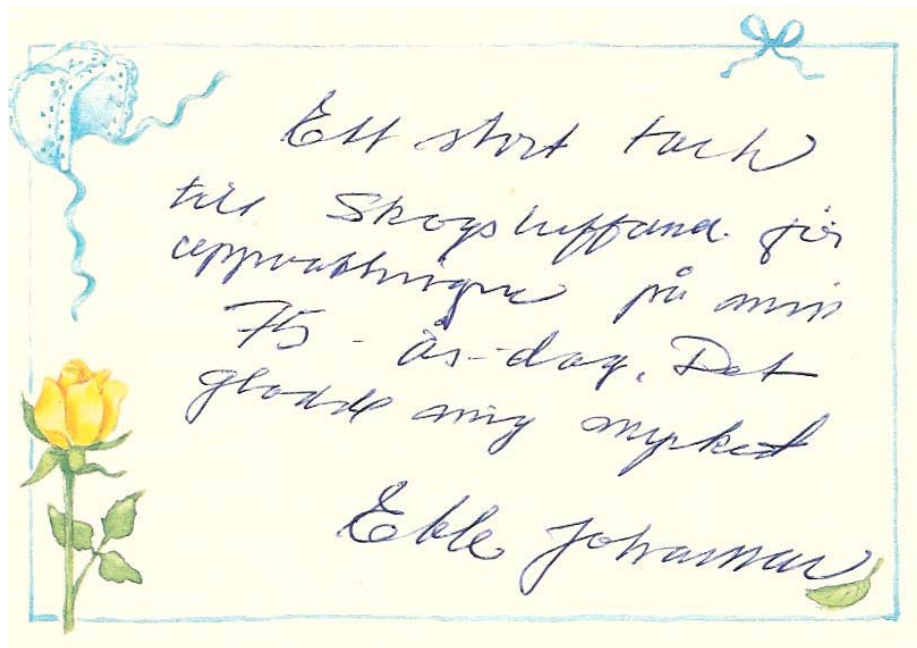 Ett stort tack
till Skogsluffarna för
uppvaktningen på min
75-års-dag. Det
gladde mig mycket
Johansson